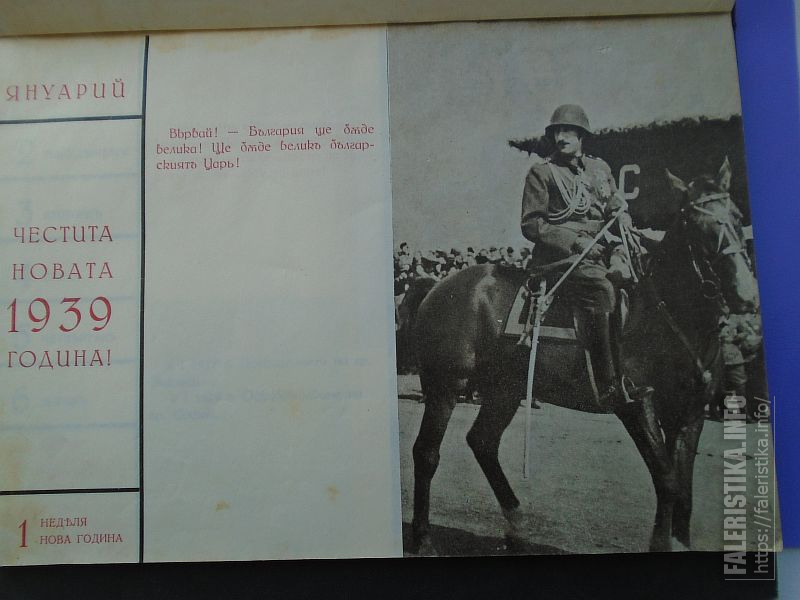 ЯНУАРИЙ
ЧЕСТИТА
НОВАТА
1939
ГОДИНА!
1 НЕДѢЛЯ
НОВА ГОДИНА
Вѣрвай! — България ще бѫде
велика! Ще бѫде великъ българ-
скиятъ Царь!
С
FALERISTIKA.INFO
https://faleristika.info/